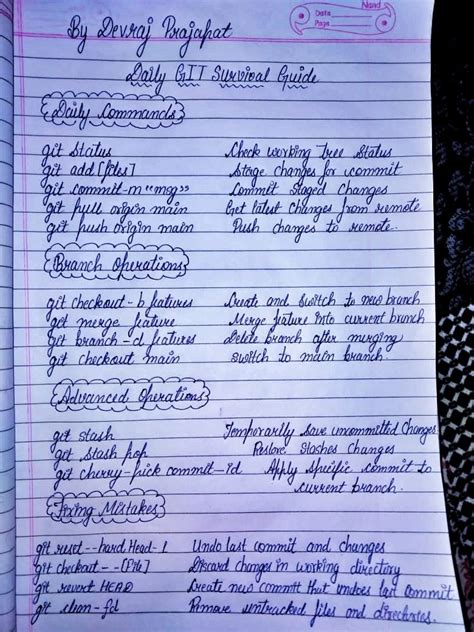 Nand
Date
Page
By Devraj Prajapat
Daily GIT Survival Guide
Daily Commands
git status Check working Tree Status
git add [files] Stage changes for commit
git commit -m "msg" Commit Staged Changes
git pull origin main Get latest Changes from remote
git push origin main Push changes to remote.
Branch Operations
git checkout -b features Create and Switch to new branch
git merge feature Merge feature into current branch
git branch -d features Delete branch after merging
git checkout main Switch to main branch.
Advanced Operations
git stash Temporarily save uncommitted Changes
git stash pop Restore Stashes Changes
git cherry-pick commit-id Apply Specific commit to
current branch.
Fixing Mistakes
git reset --hard Head-1 Undo last commit and changes
git checkout -- [File] Discard changes in working directory
git revert HEAD Create new commit that undoes last commit
git clean -fd Remove untracked files and directories.